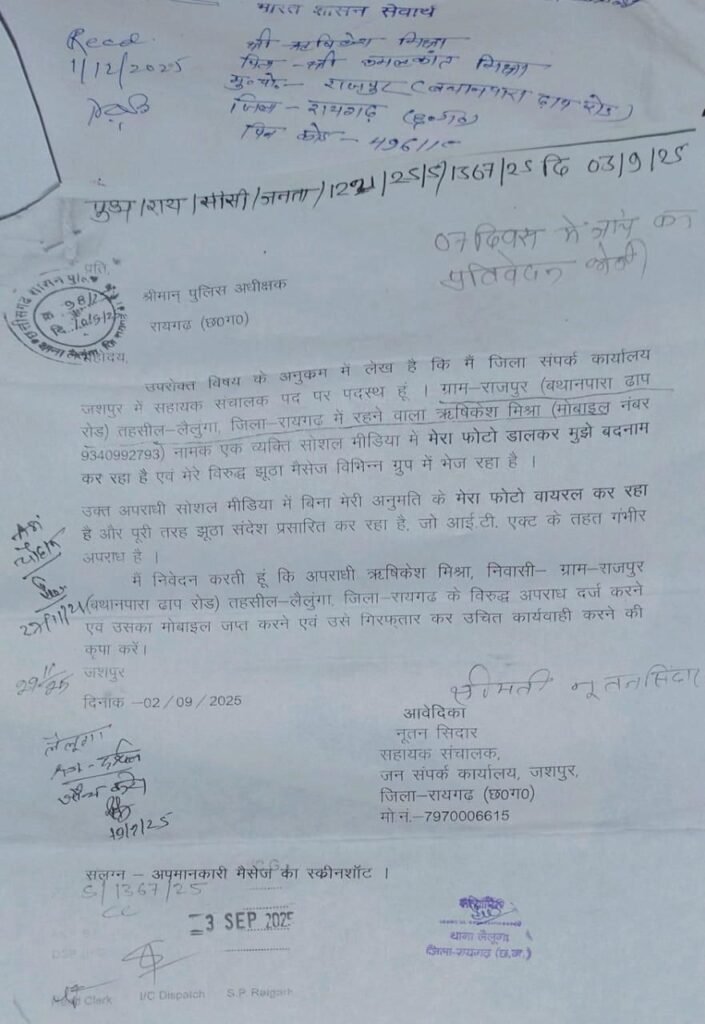 भारत शासन सेवार्थ
Recd.
1/12/2025
श्री ऋषिकेश मिश्रा
पिता - श्री कमलकांत मिश्रा
मु०पो०- राजपुर (बथानपारा ढाप रोड)
जिला - रायगढ़ (छ०ग०)
पिन कोड - 49611
/राय/सीसी/जनता/ /25/S/1367/25 दि 03/9/25
07 दिवस में जांच कर
प्रतिवेदन
प्रति,
श्रीमान् पुलिस अधीक्षक
रायगढ़ (छ०ग०)
महोदय,
उपरोक्त विषय के अनुकम में लेख है कि मैं जिला संपर्क कार्यालय
जशपुर में सहायक संचालक पद पर पदस्थ हूं । ग्राम-राजपुर (बथानपारा ढाप
रोड) तहसील-लैलुंगा, जिला-रायगढ में रहने वाला ऋषिकेश मिश्रा (मोबाइल नंबर
9340992793) नामक एक व्यक्ति सोशल मीडिया में मेरा फोटो डालकर मुझे बदनाम
कर रहा है एवं मेरे विरुद्ध झूठा मैसेज विभिन्न ग्रुप में भेज रहा है ।
उक्त अपराधी सोशल मीडिया में बिना मेरी अनुमति के मेरा फोटो वायरल कर रहा
है और पूरी तरह झूठा संदेश प्रसारित कर रहा है, जो आई.टी. एक्ट के तहत गंभीर
अपराध है ।
मैं निवेदन करती हूं कि अपराधी ऋषिकेश मिश्रा, निवासी- ग्राम-राजपुर
(बथानपारा ढाप रोड) तहसील-लैलुंगा, जिला-रायगढ के विरुद्ध अपराध दर्ज करने
एवं उसका मोबाइल जप्त करने एवं उसे गिरफ्तार कर उचित कार्यवाही करने की
कृपा करें।
जशपुर
दिनांक -02/09/2025
श्रीमती नूतन सिदार
आवेदिका
नूतन सिदार
सहायक संचालक,
जन संपर्क कार्यालय, जशपुर,
जिला-रायगढ (छ०ग०)
मो नं.-7970006615
लैलूंगा
19/9/25
सलग्न - अपमानकारी मैसेज का स्कीनशॉट ।
S/1367/25
CC
3 SEP 2025
थाना लैलूंगा
जिला-रायगढ़ (छ.ग.)
Clark I/C Dispatch S.P. Raigarh